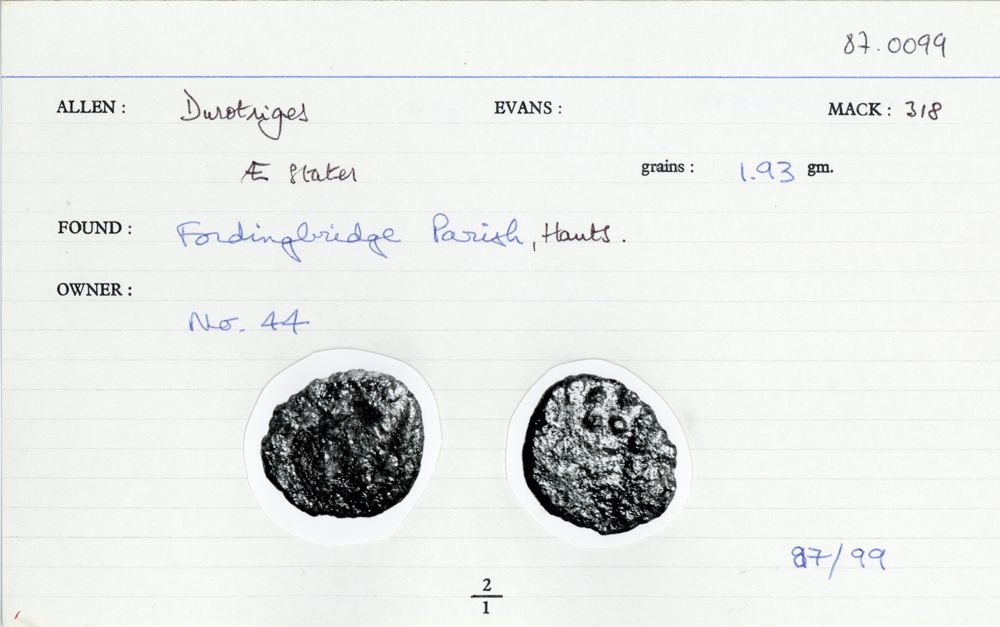 87.0099
ALLEN : Durotriges EVANS : MACK : 318
Æ Stater grains : 1.93 gm.
FOUND : Fordingbridge Parish, Hants.
OWNER :
No. 44
87/99
2
1